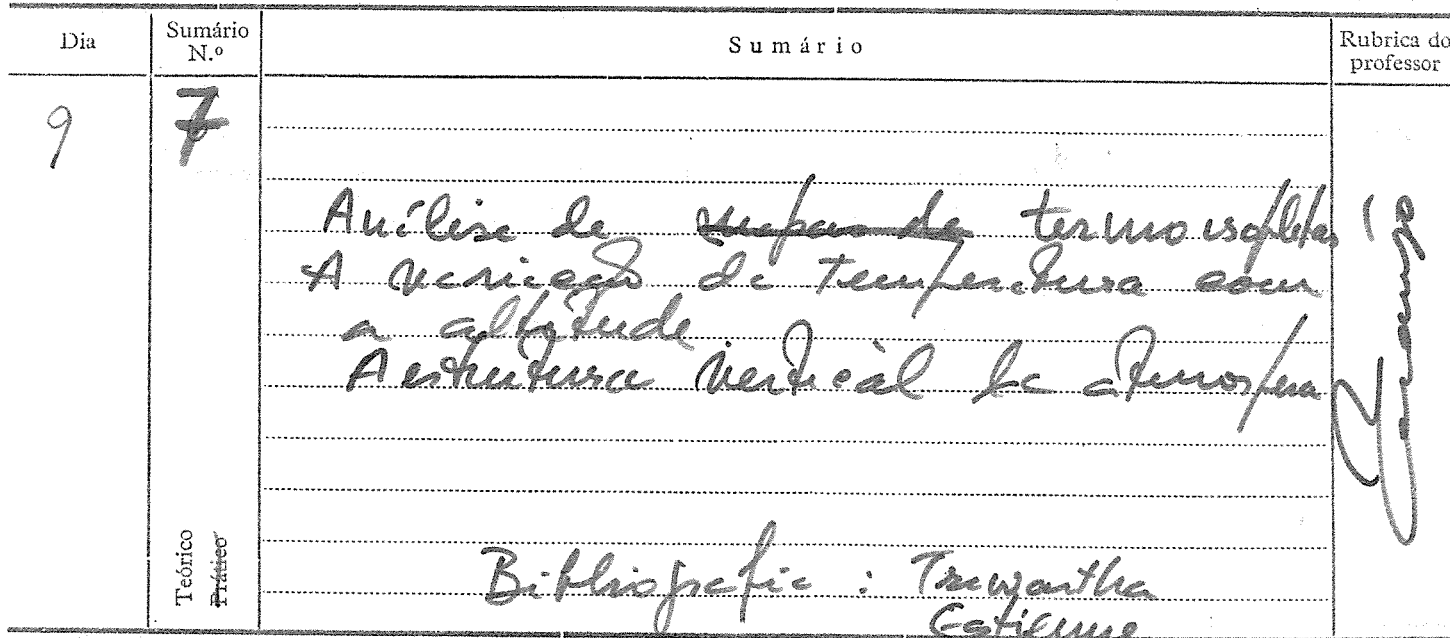 Dia
Sumário N.º
Sumário
Rubrica do professor
9
7
Análise de mapas de termoisopletas
A variação da temperatura com
a altitude
A estrutura vertical da atmosfera
Teórico
Prático
Bibliografia : Trewartha
Estienne